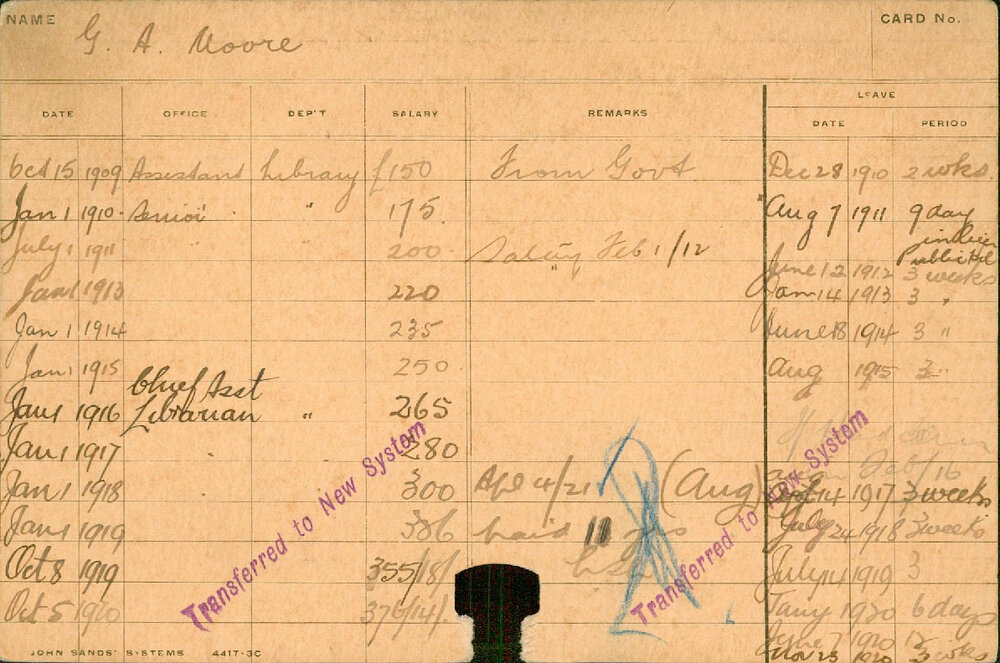 NAME G. A. Moore CARD No.
LEAVE
DATE OFFICE DEP'T SALARY REMARKS DATE PERIOD
Oct 15 1909 Assistant Library £150 From Govt Dec 28 1910 2 wks.
Jan 1 1910 Senior " 175. Aug 7 1911 9 day
July 1 1911 " " 200 Salary Feb 1/12
June 12 1912 3 weeks
Jan 1 1913 220 Jan 14 1913 3 "
Jan 1 1914 235 June 18 1914 3 "
Jan 1 1915 250 Aug 1915 3 "
Chief Asst
Jan 1 1916 Librarian " 265
Jan 1 1917 280
Feb/16
Jan 1 1918 300 Age 4/21 (Aug) Sept 14 1917 3 weeks
Jan 1 1919 386 11 July 24 1918 3 weeks
Oct 8 1919 355/18/ July 14 1919 3
Oct 5 1920 376/14/. Jany 1920 6 days
June 7 1920
Nov 23 1920 3 wks
Transferred to New System
Transferred to New System
JOHN SANDS' SYSTEMS 4417-3C